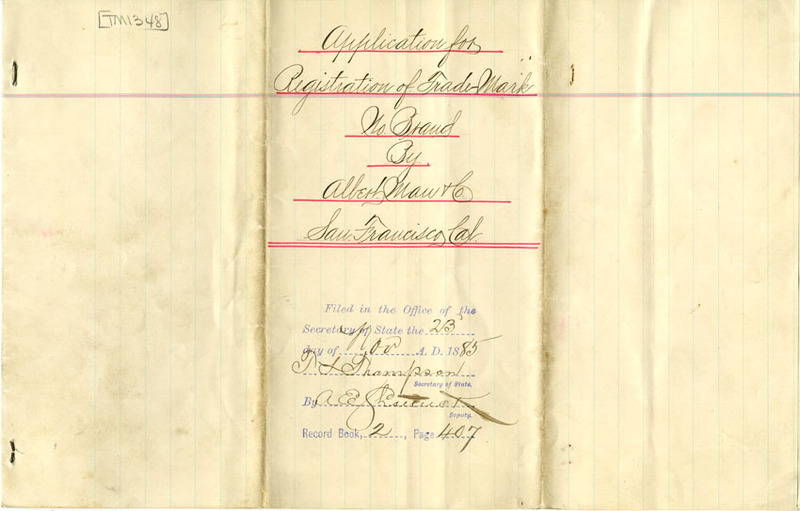 [TM1348]
Application for
Registration of Trade-Mark
No Brand
By
Albert Mau & Co.
San Francisco, Cal.
Filed in the Office of the
Secretary of State the 23
day of Nov A. D. 1885
T L Thompson
Secretary of State.
By A E
Deputy.
Record Book, 2, Page 407